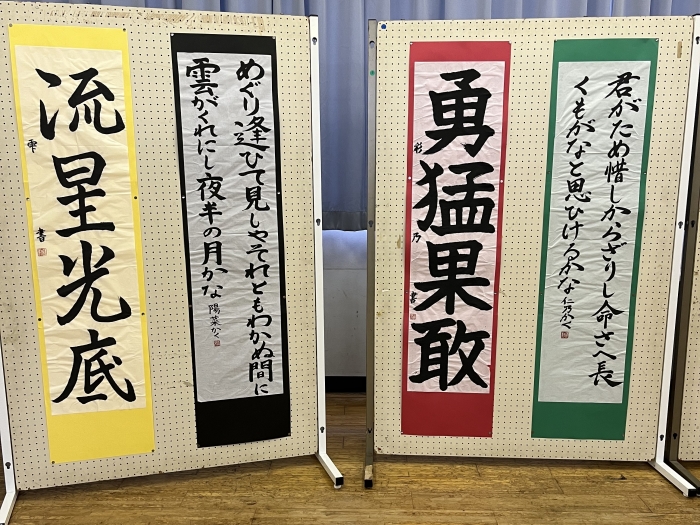 流星光底
書
めぐり逢ひて見しやそれともわかぬ間に
雲がくれにし夜半の月かな 陽菜かく
勇猛果敢
彩乃書
君がため惜しからざりし命さへ長
くもがなと思ひけるかな 仁乃かく